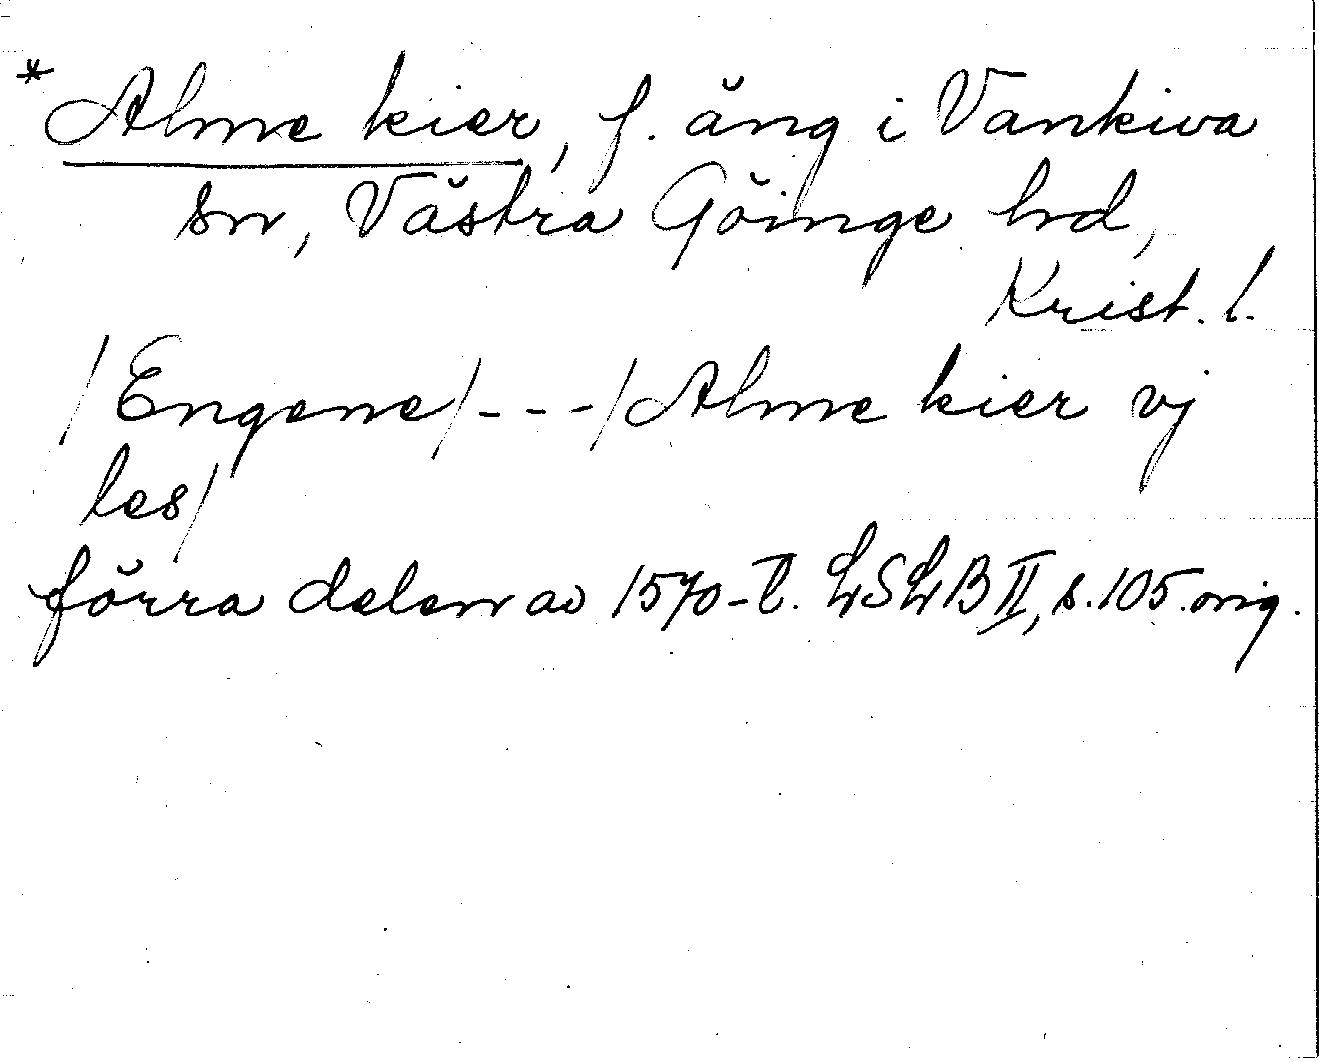 *Alme kier, f. äng i Vankiva
sn, Västra Göinge hd,
Krist. l.
/Engene/---/Alme kier vj
les/
förra delen av 1570-t. LSLB II, s. 105. orig.